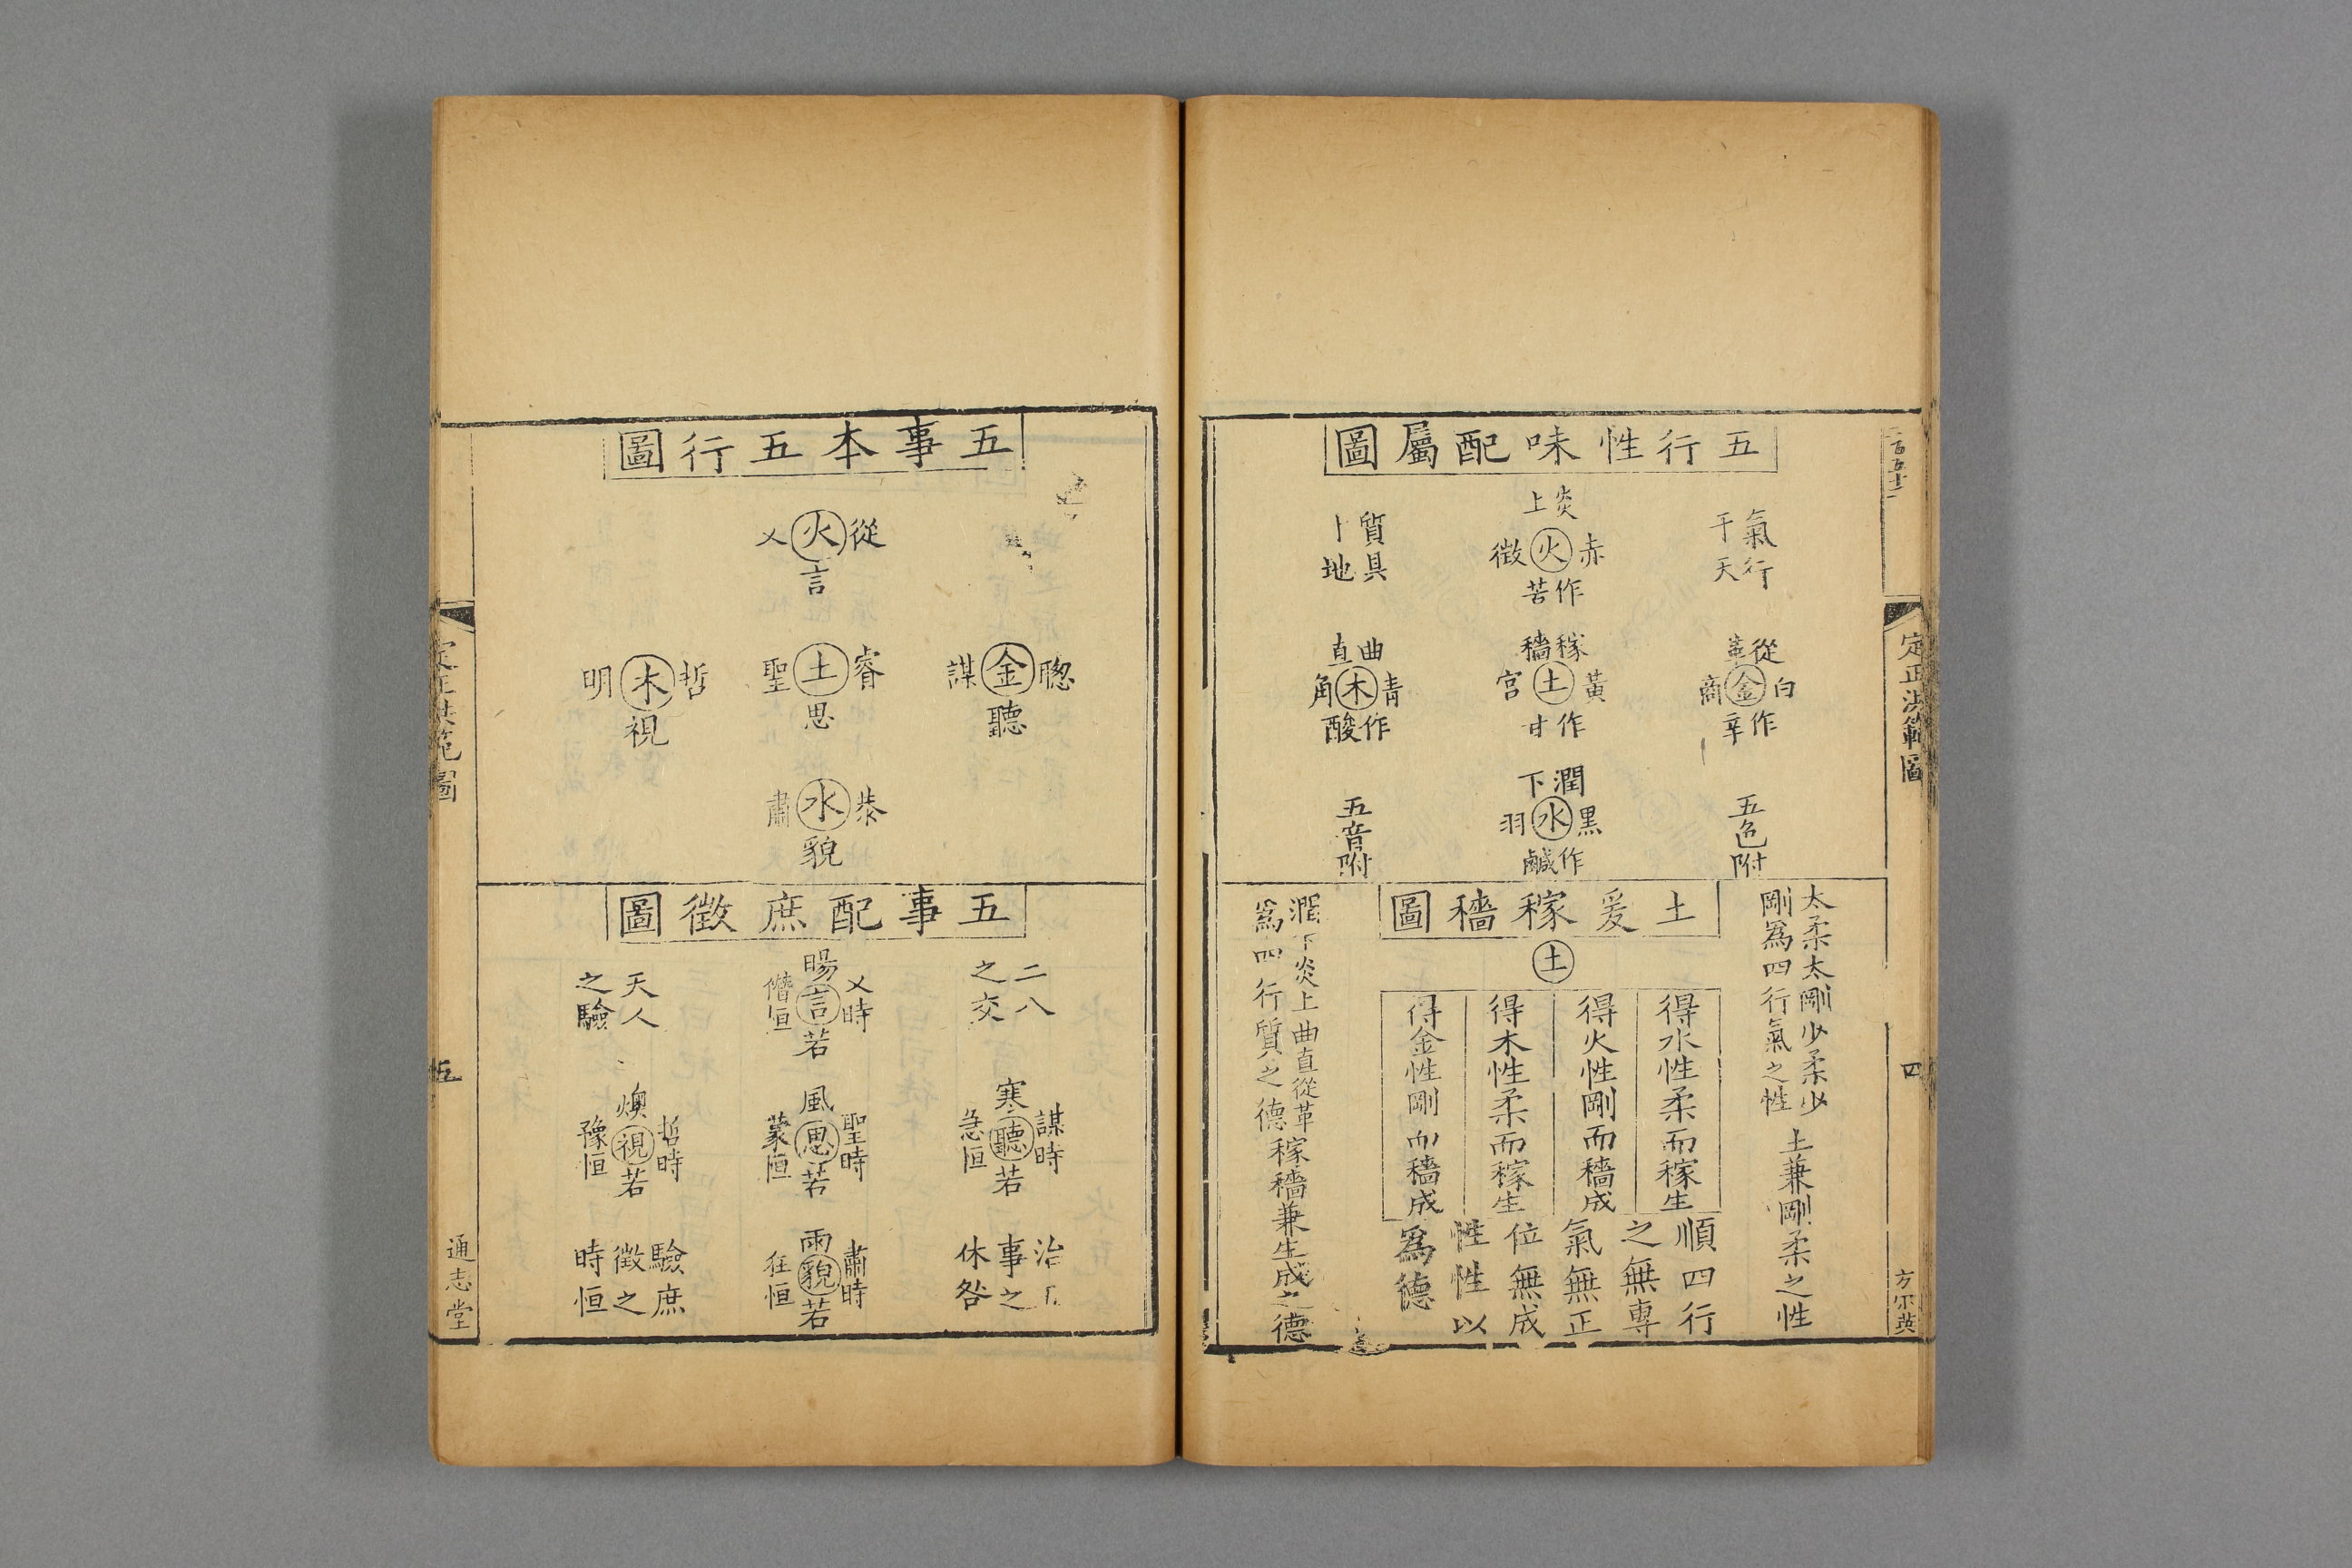 五行性味配屬圖
氣行
于天
炎上
赤
火
徵
作苦
質具
地
從革
白
金
商
作辛
稼穡
黃
土
宮
作甘
曲直
青
木
角
作酸
五色附
潤下
黑
水
羽
作鹹
五音附
太柔太剛少柔少
剛爲四行氣之性
土兼剛柔之性
土爰稼穡圖
土
得水性柔而稼生
得火性剛而穡成
得木性柔而稼生
得金性剛而穡成
順四行
之無專
氣無正
位無成
性性以
爲德
潤下炎上曲直從革
爲四行質之德
稼穡兼生成之德
定正洪範圖
四
方
英
五事本五行圖
從
火
乂
言
聰
金
謀
聽
睿
土
聖
思
哲
木
明
視
恭
水
肅
貌
五事配庶徵圖
二八
之交
暘
乂時
言
僭恒
若
天人
之驗
寒
謀時
聽
急恒
若
風
聖時
思
蒙恒
若
燠
哲時
視
豫恒
若
治
事之
休咎
雨
肅時
貌
狂恒
若
驗庶
徵之
時恒
定正洪範圖
五
通志堂